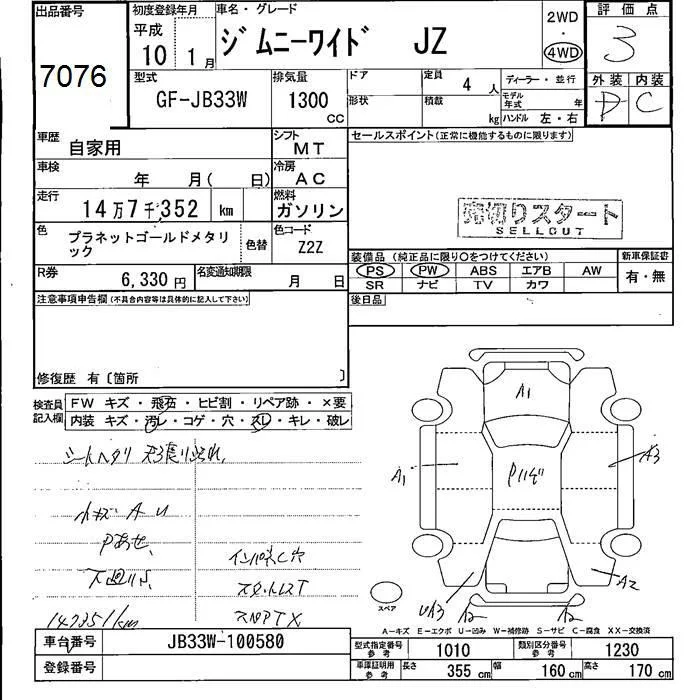 出品番号
7076
初度登録年月
平成
10 1月
車名・グレード
ジムニーワイド JZ
2WD
4WD
評価点
3
型式
GF-JB33W
排気量
1300
CC
ドア
形状
定員
4 人
積載
kg
ディーラー・並行
モデル年式 年
ハンドル 左・右
外装 内装
D C
車歴
自家用
シフト
MT
セールスポイント(正常に機能するものに限ります)
車検
年 月( 日)
冷房
AC
走行
14万7千,352 km
燃料
ガソリン
売切りスタート
SELLOUT
色
プラネットゴールドメタリック
色替
色コード
Z2Z
装備品(純正品に限り○をつけてください)
PS PW ABS エアB AW
SR ナビ TV カワ
新車保証書
有・無
R券
6,330 円
名変通知期限
月 日
後日品
注意事項申告欄(不具合内容等は具体的に記入して下さい)
修復歴 有〔箇所 〕
検査員記入欄
FW キズ・飛石・ヒビ割・リペア跡・×要
内装 キズ・汚レ・コゲ・穴・スレ・キレ・破レ
シートヘタリ
小キズ A U
Pあせ
インパネビス穴
スタットレスT
147351km
A1
A1
A3
A2
UA3
A2
A2
スペア
A-キズ E-エクボ U-凹み W-補修跡 S-サビ C-腐食 XX-交換済
車台番号
JB33W-100580
登録番号
型式指定番号 参考 1010
類別区分番号 参考 1230
車庫証明用 参考 長さ 355 cm 幅 160 cm 高さ 170 cm